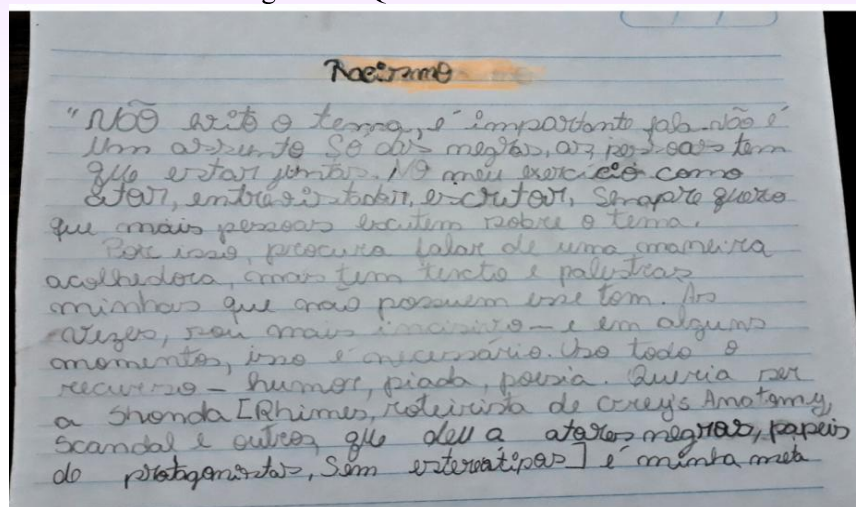 Racismo
"Não evito o tema, é importante fala não é
um assunto só dos negros, as pessoas tem
que estar juntas. No meu exercício como
ator, entrevistador, escrutor, sempre quero
que mais pessoas escutem sobre o tema.
Por isso, procuro falar de uma maneira
acolhedora, mas tem texto e palestras
minhas que não possuem esse tom. As
vezes, sou mais incisivo - e em alguns
momentos, isso é necessário. Uso todo o
recurso - humor, piada, poesia. Queria ser
a Shonda [Rhimes, roteirista de Grey's Anatomy,
Scandal e outros, que deu a atores negros, papeis
de protagonistas, sem estereótipos] é minha meta